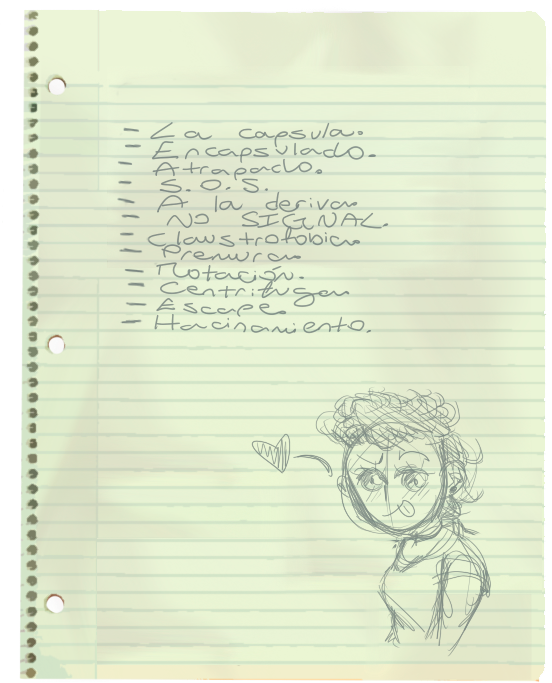 - La capsula.
- Encapsulado.
- Atrapado.
- S.O.S.
- A la deriva.
- NO SIGNAL.
- Claustrofobica.
- Premura.
- Rotación.
- Centrifuga.
- Escape.
- Hacinamiento.